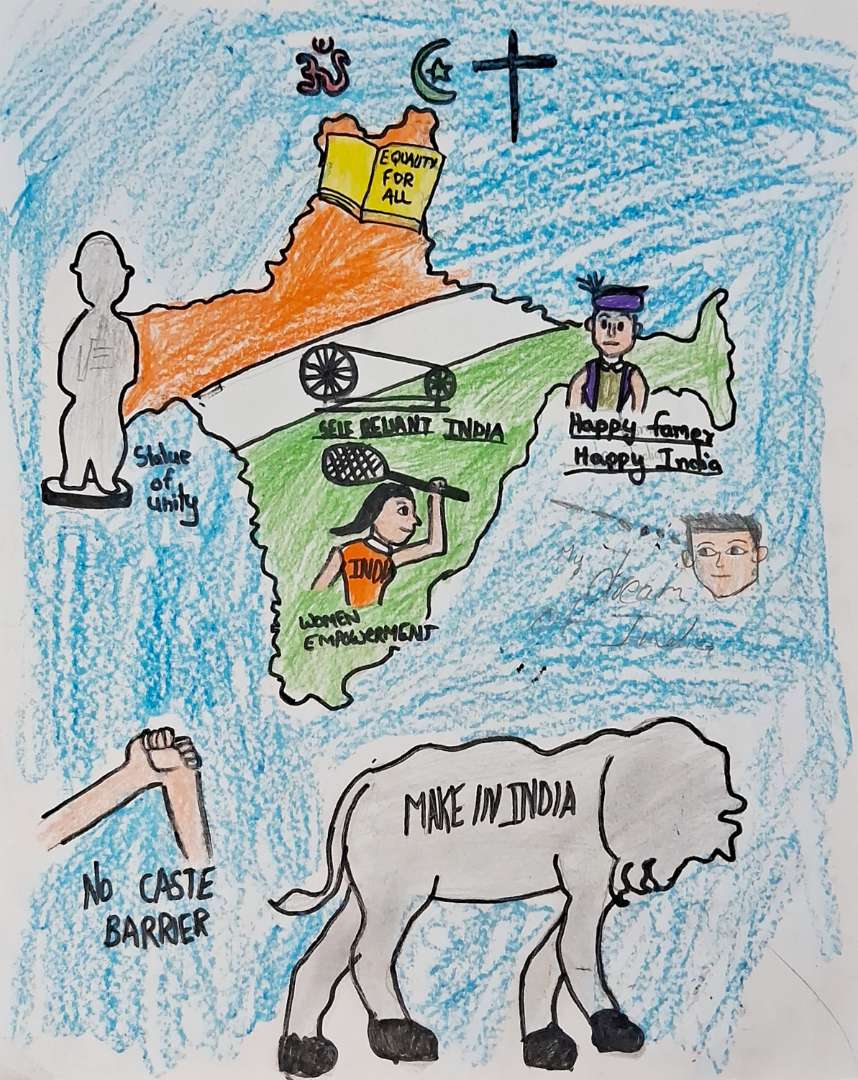 ॐ
EQUALITY
FOR
ALL
SELF RELIANT INDIA
Happy famer
Happy India
Statue
of
unity
INDIA
My
dream
of India
WOMEN
EMPOWERMENT
MAKE IN INDIA
NO CASTE
BARRIER